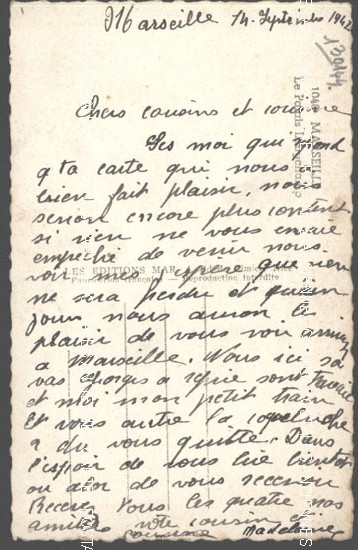 Marseille 14 Septembre 1942
130144
1046 MARSEILLE
Le Palais Longchamp
Chers cousins et cousine
Ses moi qui répond
a ta carte qui nous a
bien fait plaisir, nous
serion encore plus content
si rien ne vous ensue
empeché de venir nous
voir mes j'espère que rien
ne sera perdu et qu'un
jour nous auron le
plaisir de vous voir
a Marseille. Nous ici sa
vas Georges a repris sont travail
et moi mon petit train
Et vous autre la coqueluche
a du vous quitté. Dans
l'espoir de vous lire bientot
ou alor de vous recevoir
Recever Vous les quatre nos
amitiés votre cousin et
cousine Madeleine
LES EDITIONS MAR
Reproduction interdite